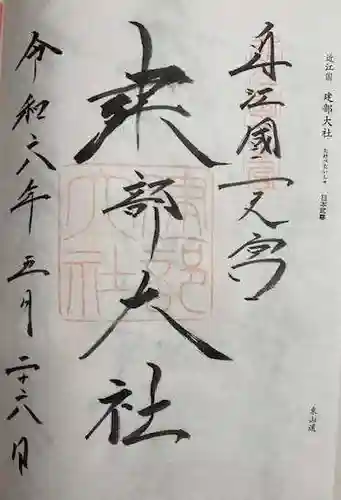 近江国 建部大社 たけべたいしゃ 日本武尊
東山道
近江國一之宮
建部大社
令和六年五月二十六日